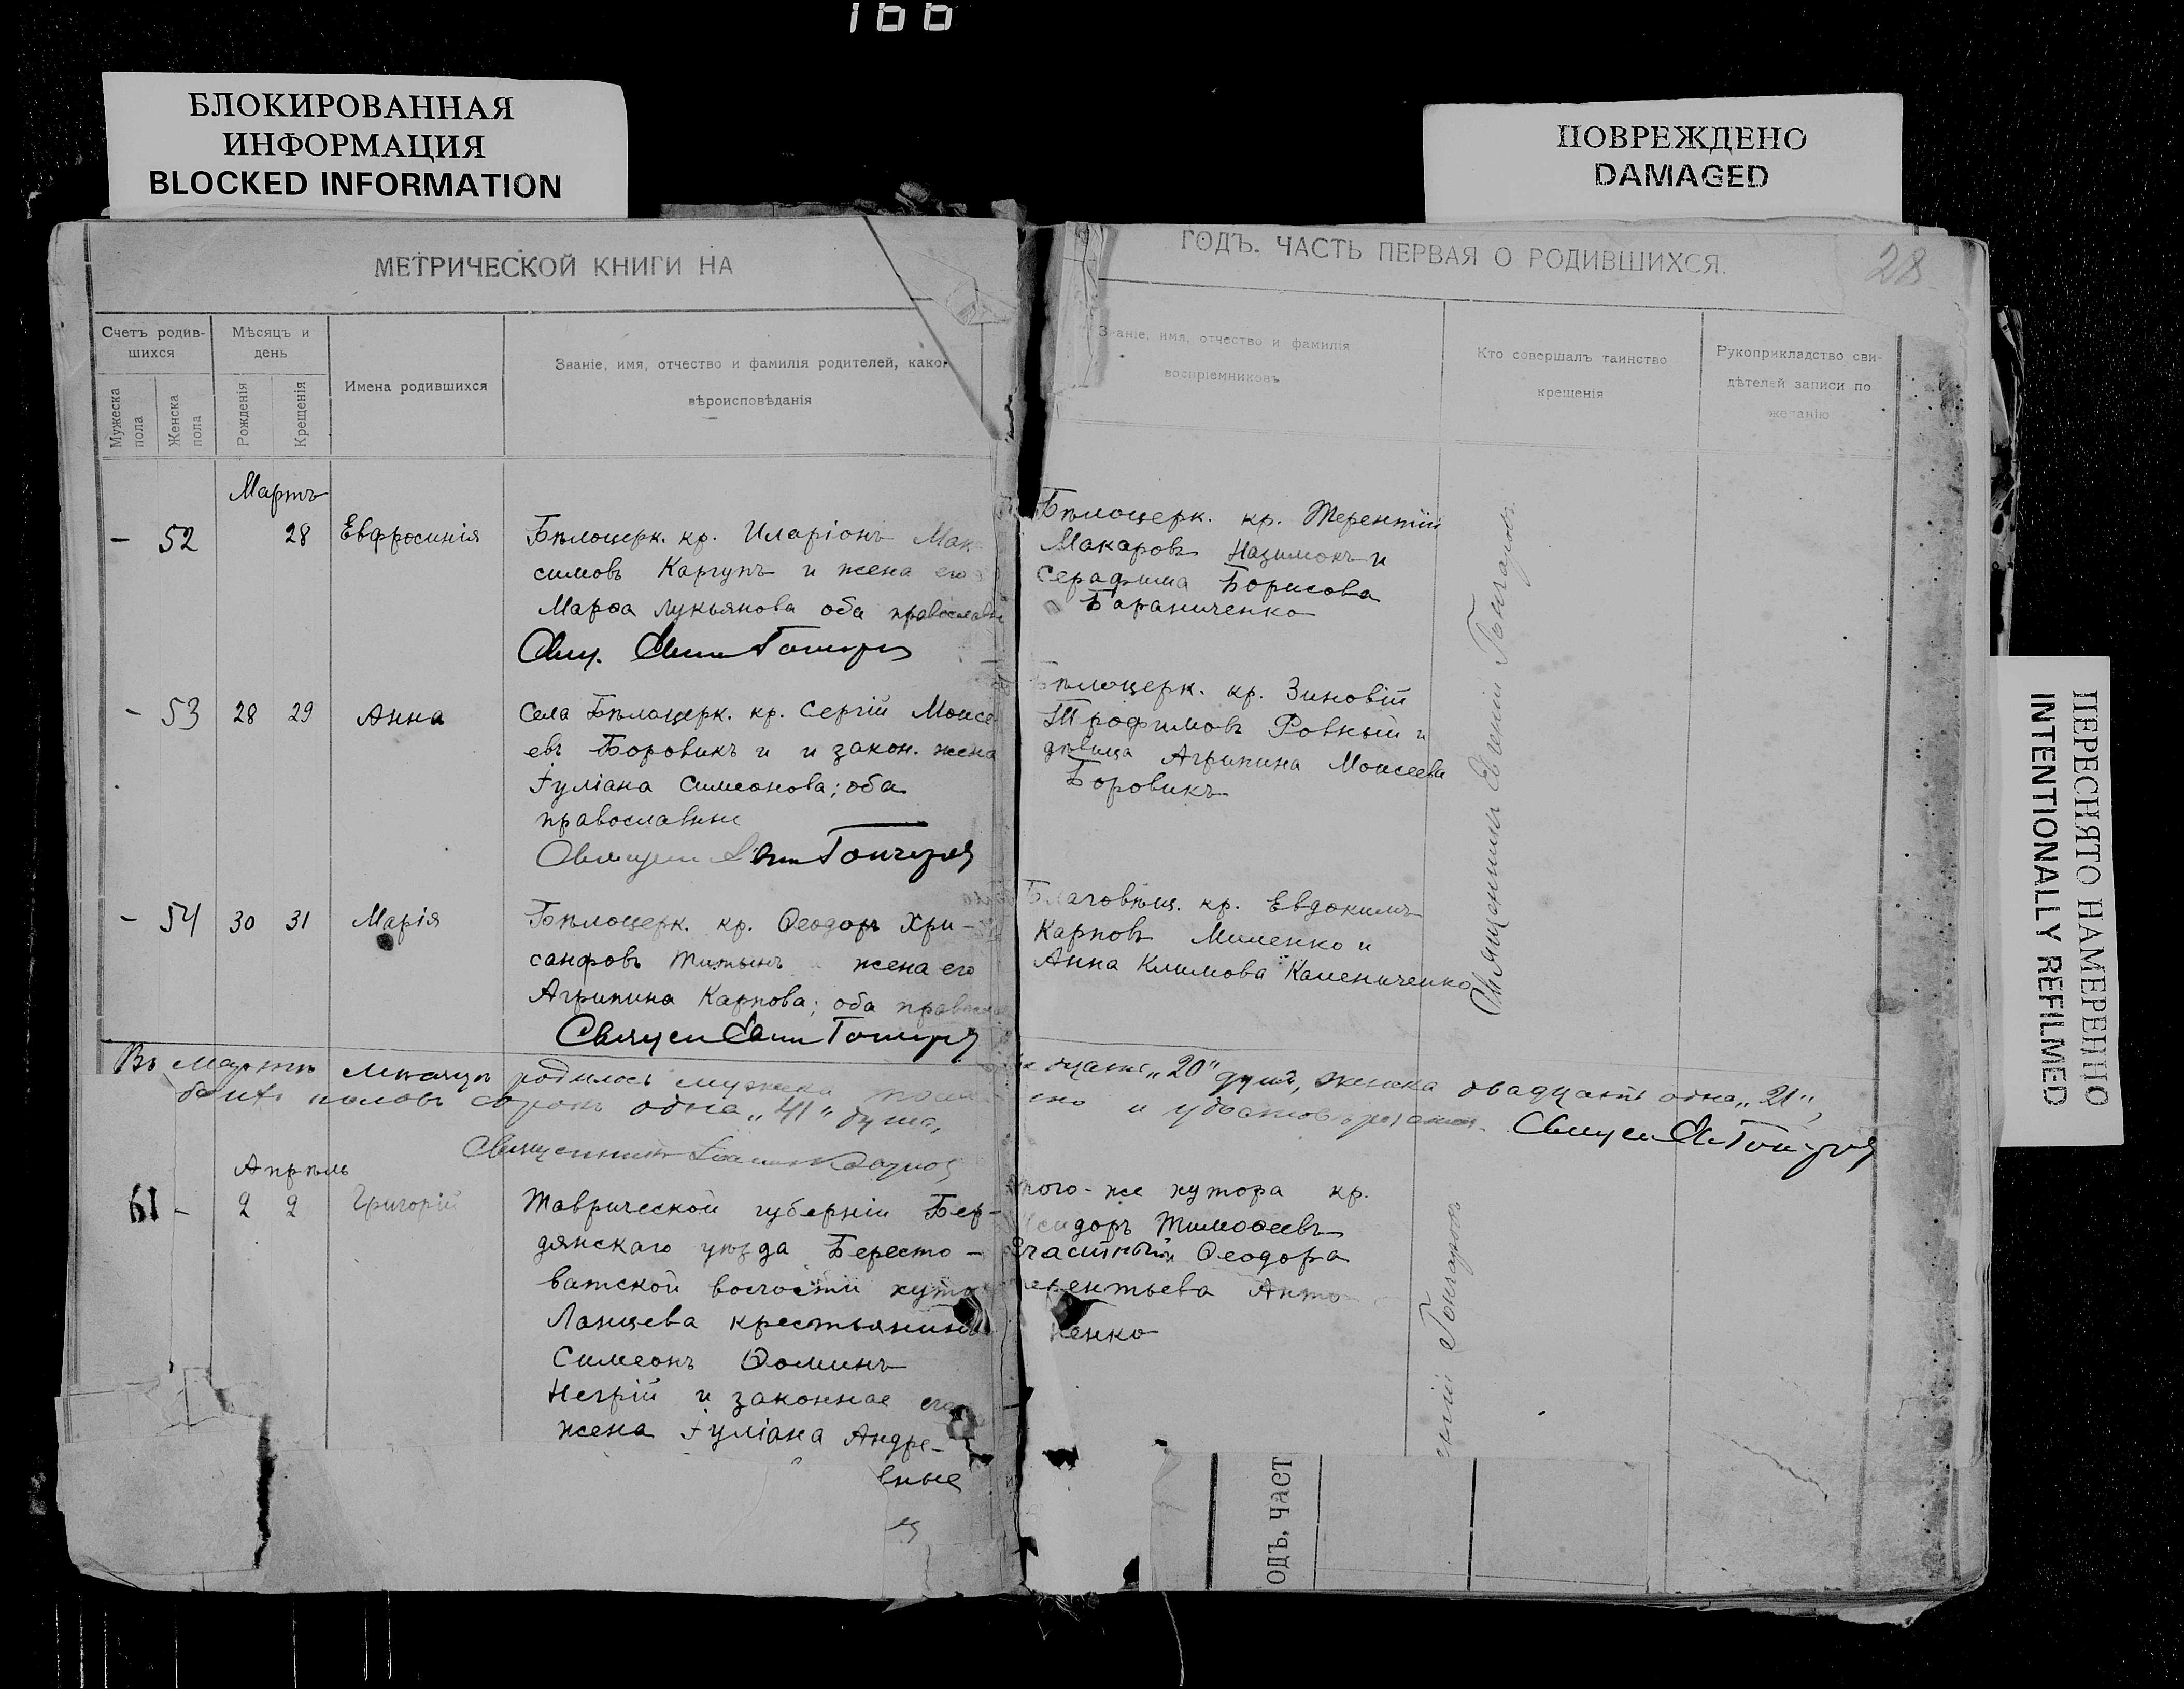 166
БЛОКИРОВАННАЯ
ИНФОРМАЦИЯ
BLOCKED INFORMATION
ПОВРЕЖДЕНО
DAMAGED
МЕТРИЧЕСКОЙ КНИГИ НА
ГОДЪ. ЧАСТЬ ПЕРВАЯ О РОДИВШИХСЯ.
28
Счетъ родив-
шихся
Мужеска
пола
Женска
пола
Мѣсяцъ и
день
Рожденія
Крещенія
Имена родившихся
Званіе, имя, отчество и фамилія родителей, како
вѣроисповѣданія
Званіе, имя, отчество и фамилія
воспріемниковъ
Кто совершалъ таинство
крещенія
Рукоприкладство сви-
дѣтелей записи по
желанію
Мартъ
– 52 28 Евфросинія
Бѣлоцерк. кр. Иларіонъ Мак
симовъ Каргунъ и жена его
Марѳа Лукьянова оба православн
Бѣлоцерк. кр. Терентій
Макаровъ Назимокъ и
Серафима Борисова
Бараниченко
– 53 28 29 Анна
Села Бѣлоцерк. кр. Сергій Моисе
евъ Боровикъ и и закон. жена
Іуліана Симеонова; оба
православные
Бѣлоцерк. кр. Зиновій
Трофимовъ Ровный и
дѣвица Агрипина Моисеева
Боровикъ
– 54 30 31 Марія
Бѣлоцерк. кр. Ѳеодоръ Хри-
санфовъ жена его
Агрипина Карпова; оба правосл
Благовѣщ. кр. Евдокимъ
Карповъ Миленко и
Анна Климова Камениченко
Священникъ Евгеній Гончаровъ
Въ Мартѣ мѣсяцѣ родилось мужска пола
цать „20" душъ, женска двадцать одна „21",
половъ сорокъ одна „41" душа,
Священникъ
Апрѣль
61 – 2 2 Григорій
Таврической губерніи Бер-
дянскаго уѣзда Бересто-
ватской волости хуто
Ланцева крестьянинъ
Симеонъ Ѳоминъ
Негрій и законная его
жена Іуліана Андре-
вные
того-же хутора кр.
Исидоръ Тимоѳеевъ
Ѳеодора
ерентьева Анто
ненко
ній Гончаровъ
ОДЪ, ЧАСТ
ПЕРЕСНЯТО НАМЕРЕННО
INTENTIONALLY REFILMED